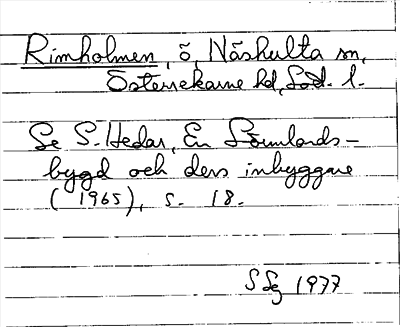 Rimholmen, ö, Näshulta sn,
Österrekarne hd, Söd. l.
Se S. Hedar, En Sörmlands-
bygd och dess inbyggare
(1965), s. 18.
1977